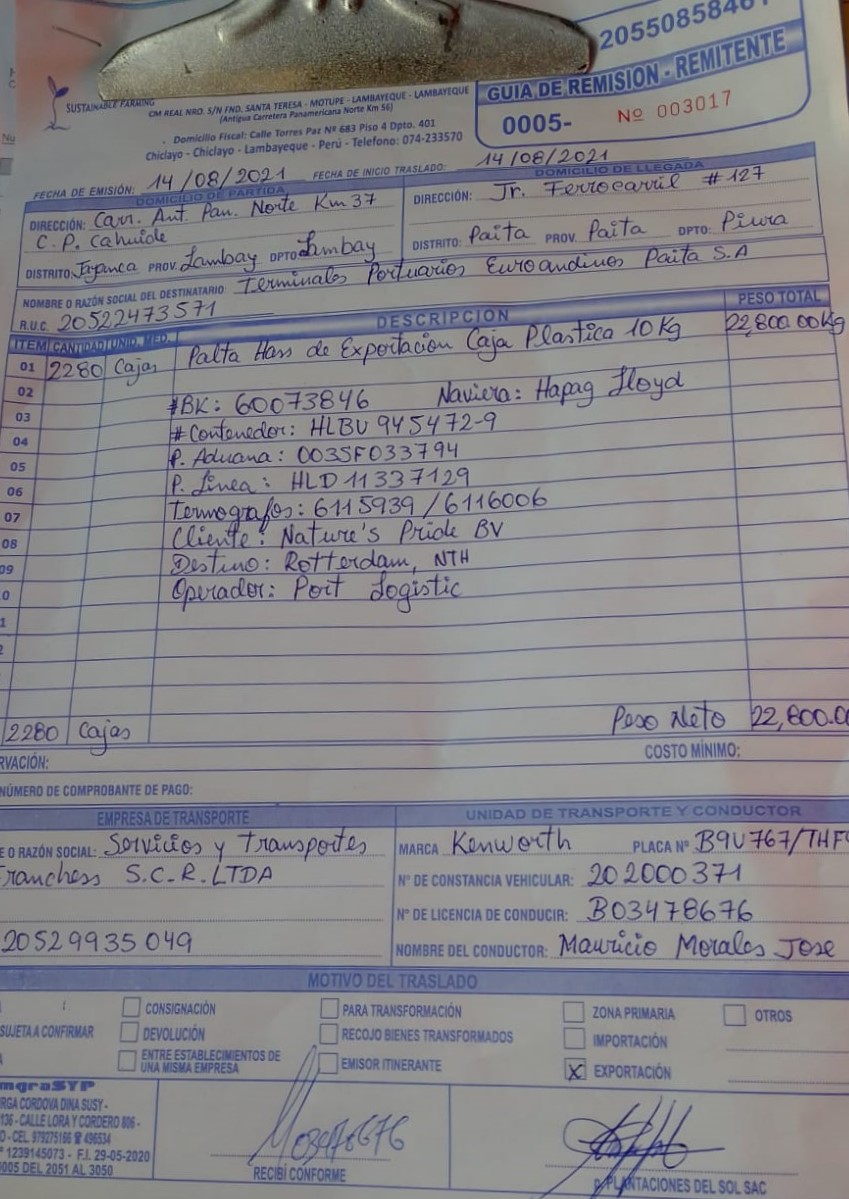 SUSTAINABLE FARMING
CM REAL NRO. S/N FND. SANTA TERESA - MOTUPE - LAMBAYEQUE - LAMBAYEQUE
(Antigua Carretera Panamericana Norte Km 56)
Domicilio Fiscal: Calle Torres Paz Nº 683 Piso 4 Dpto. 401
Chiclayo - Chiclayo - Lambayeque - Perú - Telefono: 074-233570
GUIA DE REMISION - REMITENTE
0005- Nº 003017
FECHA DE EMISIÓN: 14/08/2021 FECHA DE INICIO TRASLADO: 14/08/2021
DOMICILIO DE PARTIDA
DIRECCIÓN: Carr. Ant. Pan. Norte Km 37
C.P. Cahuide
DISTRITO: Jayanca PROV. Lambay DPTO Lambay
DOMICILIO DE LLEGADA
DIRECCIÓN: Jr. Ferrocarril # 127
DISTRITO: Paita PROV. Paita DPTO: Piura
NOMBRE O RAZÓN SOCIAL DEL DESTINATARIO: Terminales Portuarios Euroandinos Paita S.A
R.U.C. 20522473571
ITEM CANTIDAD UNID. MED. DESCRIPCION PESO TOTAL
01 2280 Cajas Palta Hass de Exportación Caja Plastica 10 Kg 22,800.00 Kg
02
03 #BK: 60073846 Naviera: Hapag Lloyd
04 # Contenedor: HLBU 945472-9
05 P. Aduana: 003SF033794
06 P. Linea: HLD 11337129
07 Termografos: 6115939 / 6116006
08 Cliente: Nature's Pride BV
09 Destino: Rotterdam, NTH
0 Operador: Port Logistic
1
2
2280 Cajas Peso Neto 22,800.0
RVACIÓN: COSTO MÍNIMO:
NÚMERO DE COMPROBANTE DE PAGO:
EMPRESA DE TRANSPORTE
E O RAZÓN SOCIAL: Servicios y Transportes
Franchess S.C.R.LTDA
20529935049
UNIDAD DE TRANSPORTE Y CONDUCTOR
MARCA Kenworth PLACA Nº B9U767/THF
Nº DE CONSTANCIA VEHICULAR: 202000371
Nº DE LICENCIA DE CONDUCIR: B03478676
NOMBRE DEL CONDUCTOR: Mauricio Morales Jose
MOTIVO DEL TRASLADO
CONSIGNACIÓN PARA TRANSFORMACIÓN ZONA PRIMARIA OTROS
SUJETA A CONFIRMAR DEVOLUCIÓN RECOJO BIENES TRANSFORMADOS IMPORTACIÓN
ENTRE ESTABLECIMIENTOS DE UNA MISMA EMPRESA EMISOR ITINERANTE X EXPORTACIÓN
mgraSYP
RGA CORDOVA DINA SUSY -
136 - CALLE LORA Y CORDERO 806 -
O - CEL. 979275166 ☎ 496534
º 1239145073 - F.I. 29-05-2020
0005 DEL 2051 AL 3050
RECIBÍ CONFORME
p. PLANTACIONES DEL SOL SAC